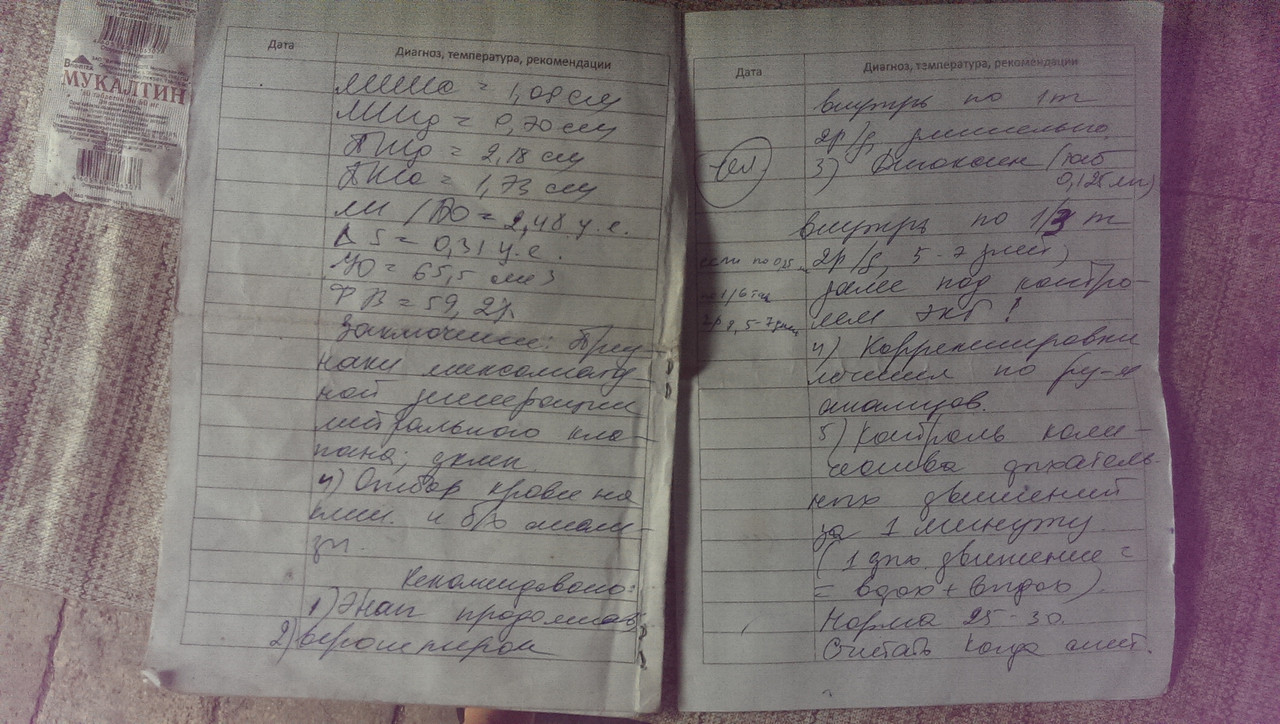 МУКАЛТИН
Дата
Диагноз, температура, рекомендации
= 1,08 см
= 0,70 см
= 2,18 см
= 1,73 см
= 2,48 у.е.
Δ S = 0,31 у.е.
УО = 65,5 см3
ФВ = 59,2%
Заключение: Приз
наки миксоматоз
ной дегенерации
митрального кла-
пана;
4) Отбор крови на
клин. и б/х анали-
зы.
Рекомендовано:
1) Энап продолжать
2) верошпирон
Дата
Диагноз, температура, рекомендации
внутрь по 1 т
2р/д длительно
3) Дигоксин (таб
0,125 мг)
внутрь по 1/3 т
2р/д, 5-7 дней,
если по 0,25
по 1/6 таб
2р д, 5-7 дней
далее под контро-
лем ЭКГ!
4) Корректировки
лечения по
анализов.
5) Контроль коли-
чества дыхатель-
ных движений
за 1 минуту.
(1 дых. движение =
= вдох + выдох).
Норма 25-30.
Считать когда спит.